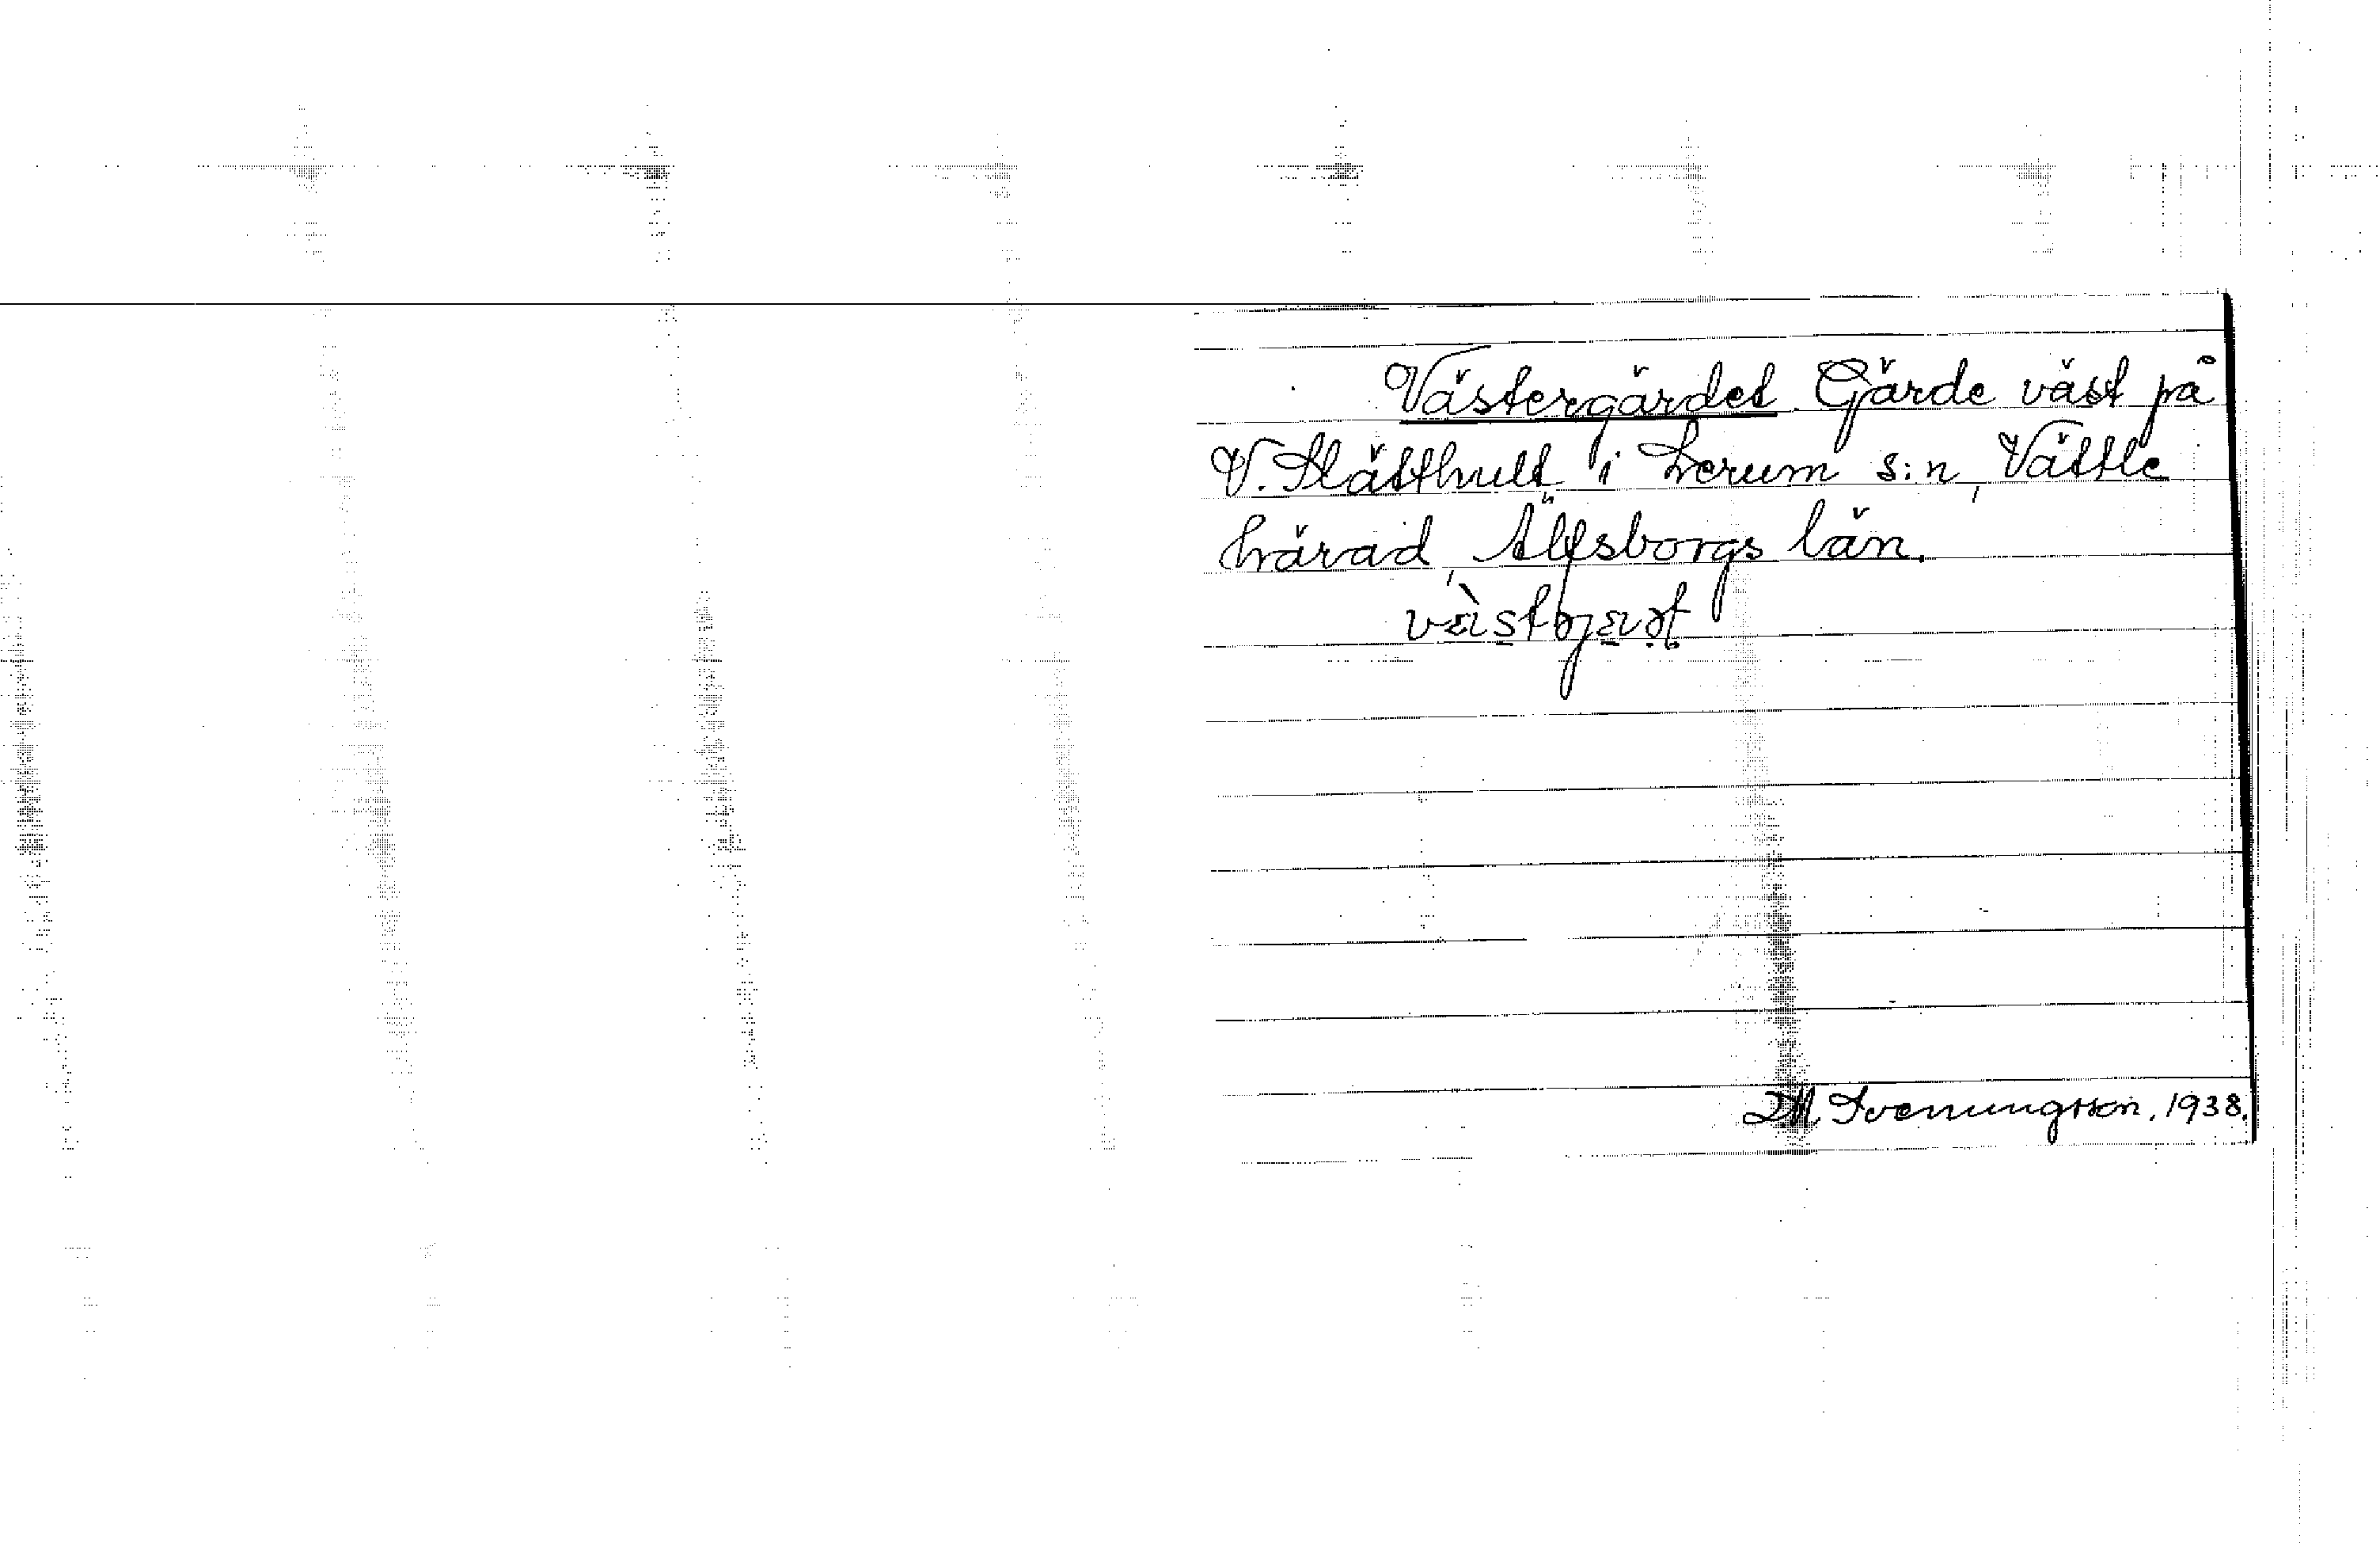 Västergärdet. Gärde väst på
V. Slätthult i Lerum s:n, Vättle
härad, Älfsborgs län.
Svenungsson, 1938.